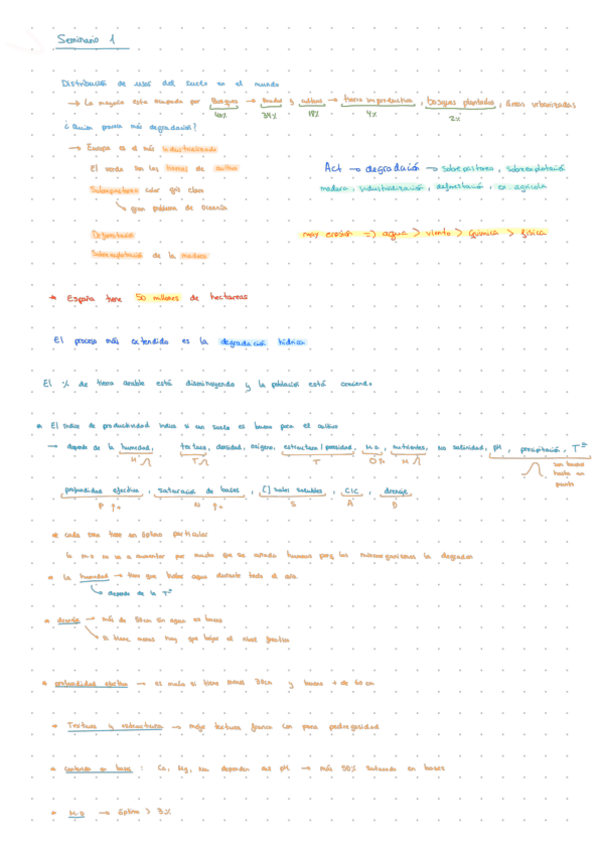 Seminario 1
Distribución de usos del suelo en el mundo
→ La mayoría esta ocupada por Bosques → prados y cultivos → tierra improductiva, bosques plantados, áreas urbanizadas
40% 34% 18% 4% 2%
¿Quién provoca más degradación?
→ Europa es el más industrializado
El verde son las tierras de cultivo
Sobrepastoreo color gris claro
↳ gran problema de Oceanía
Deforestación
Sobreexplotación de la madera
Act → degradación → sobrepastoreo, sobreexplotación
madera, industrialización, deforestación, ex agrícola
may erosión => agua > viento > química > física
→ España tiene 50 millones de hectareas
El proceso más extendido es la degradación hídrica
El % de tierra arable está disminuyendo y la población está creciendo
El índice de productividad indica si un suelo es bueno para el cultivo
→ depende de la humedad, textura, densidad, oxígeno, estructura/porosidad, M.O, nutrientes, no salinidad, pH, precipitación, Tª
H T T O% H
son buenas hasta un punto
profundidad efectiva, saturación de bases, [] sales solubles, CIC, drenaje
P N S A D
cada zona tiene un óptimo particular
la m.o no va a aumentar por mucho que se añada humus porq los microorganismos la degradan
La humedad → tiene que haber agua durante todo el año
↳ depende de la Tª
drenaje → más de sin agua es bueno
si tiene menos hay que bajar el nivel freático
profundidad efectiva → es mala si tiene menos 30cm y buena + de 60 cm
Textura y estructura → mejor textura franca con poca pedregosidad
contenido en bases: Ca, Mg, dependen del pH → más 50% saturado en bases
M.O → óptima > %